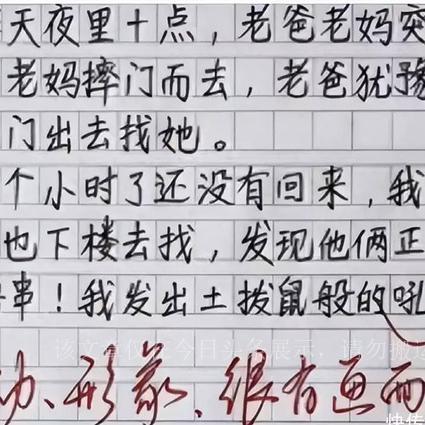 天夜里十点，老爸老妈突
老妈摔门而去，老爸犹豫
门出去找她。
个小时了还没有回来，我
也下楼去找，发现他俩正
串！我发出土拨鼠般的吼
该文章仅在今日头条展示，请勿搬运
动、形象、很有画面
快传